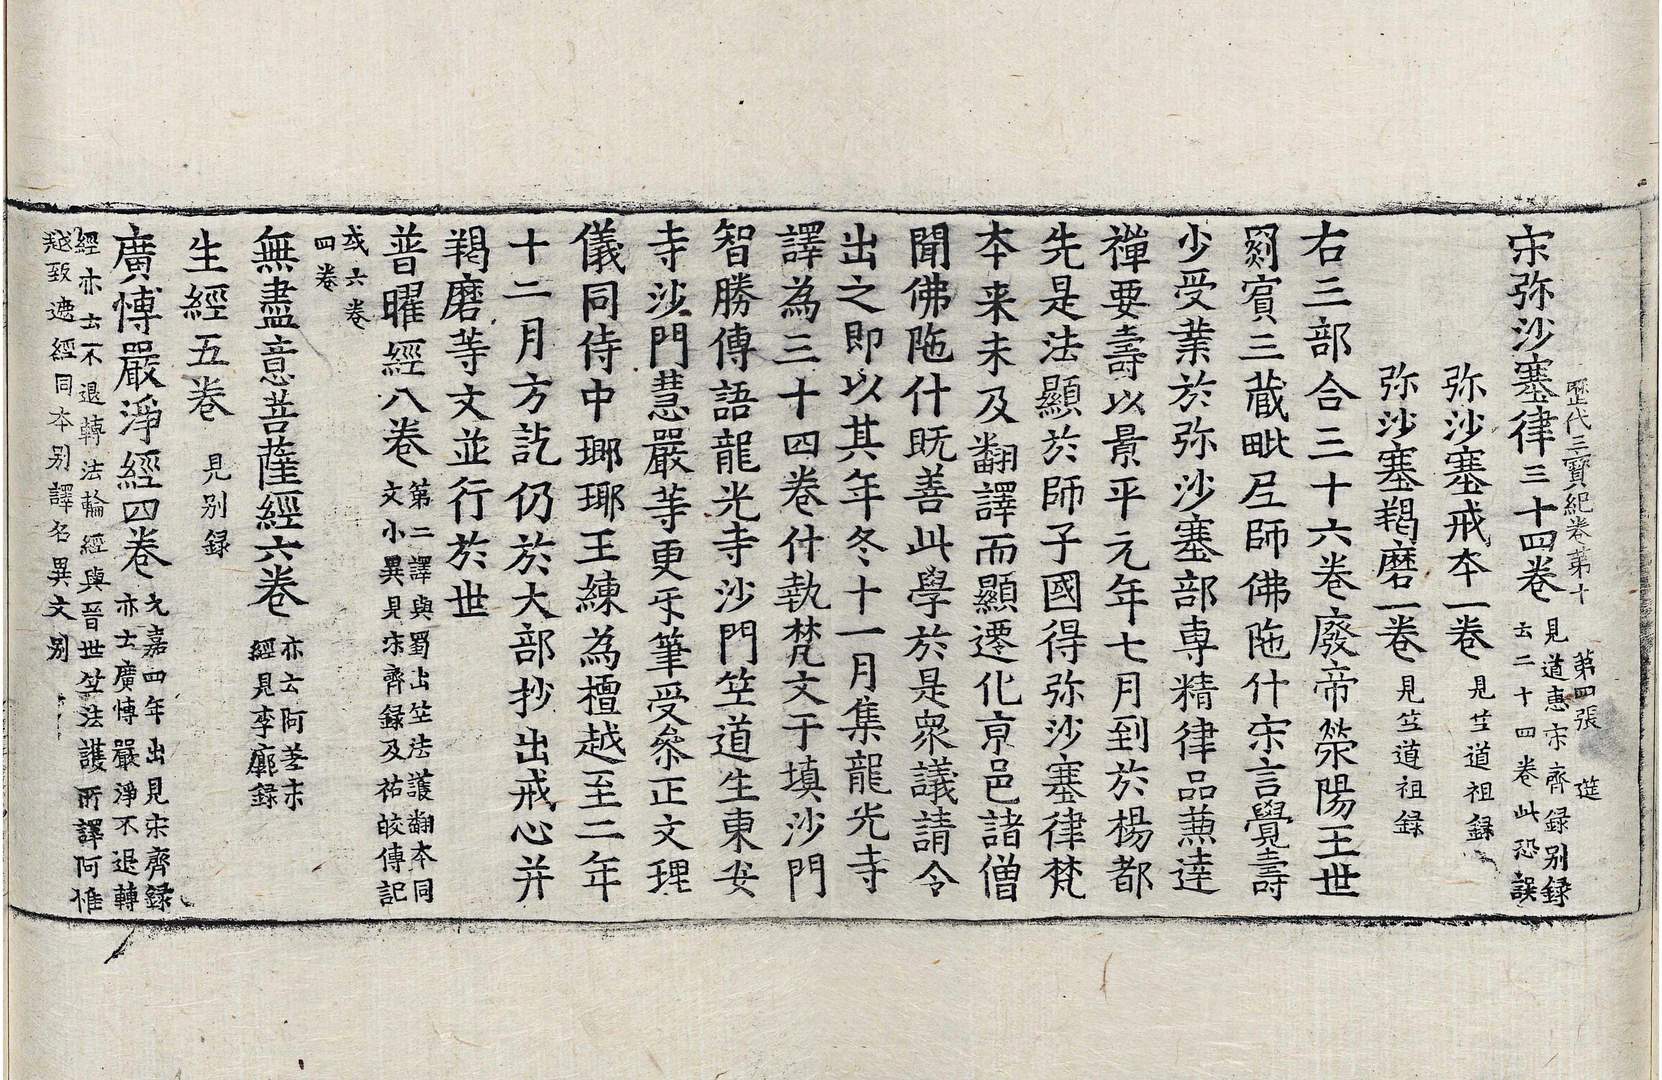 歷代三寶紀卷第十 第四張 筵
宋弥沙塞律三十四卷 見道惠宋齊録别録
云二十四卷此恐誤
弥沙塞戒夲一卷 見竺道祖録
弥沙塞羯磨一卷 見竺道祖録
右三部合三十六卷廢帝滎陽王世
罽賓三藏毗尼師佛陁什宋言覺壽
少受業於弥沙塞部専精律品兼達
禪要壽以景平元年七月到於楊都
先是法顯於師子國得弥沙塞律梵
夲来未及翻譯而顯遷化亰邑諸僧
聞佛陁什既善此學於是衆議請令
出之即以其年冬十一月集龍光寺
譯為三十四卷什執梵文于填沙門
智勝傳語龍光寺沙門竺道生東安
寺沙門慧嚴等更㸦筆受叅正文理
儀同侍中瑯瑘王練為檀越至二年
十二月方訖仍於大部抄出戒心并
羯磨等文並行於世
普曜經八卷 第二譯與蜀出竺法護翻夲同
文小異見宋齊録及祐皎傳記
或六卷
四卷
無盡意菩薩經六卷 亦云阿差末
經見李廓録
生經五卷 見别録
廣愽嚴淨經四卷 元嘉四年出見宋齊録
亦云廣愽嚴淨不退轉
經亦云不退轉法輪經與晉世竺法護所譯阿惟
越致遮經同夲别譯名異文别